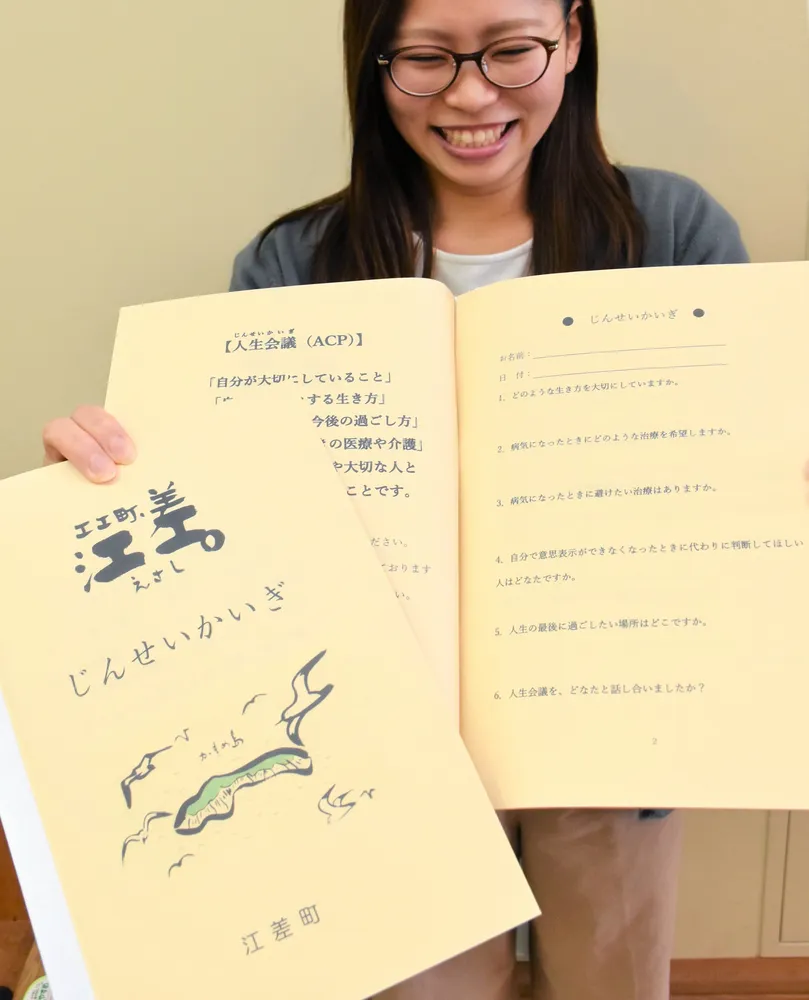 じんせいかいぎ
【人生会議（ACP）】
「自分が大切にしていること」
する生き方」
今後の過ごし方」
の医療や介護」
や大切な人と
ことです。
ださい。
ております
い。
● じんせいかいぎ ●
お名前：
日 付：
1. どのような生き方を大切にしていますか。
2. 病気になったときにどのような治療を希望しますか。
3. 病気になったときに避けたい治療はありますか。
4. 自分で意思表示ができなくなったときに代わりに判断してほしい
人はどなたですか。
5. 人生の最後に過ごしたい場所はどこですか。
6. 人生会議を、どなたと話し合いましたか？
2
江差。
えさし
じんせいかいぎ
かもめ島
江差町